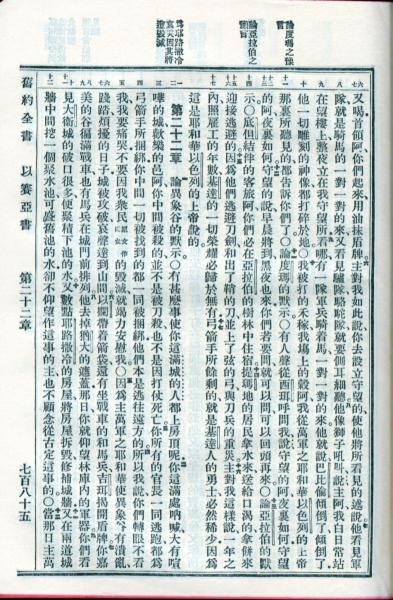 論度瑪之預言
論亞拉伯之預言
爲耶路撒冷哀哭因其將遭毀滅
又喝首領阿你們起來用油抹盾牌主對我如此說你去設立守望的使他將所看見的述說他看見軍
隊就是騎馬的一對一對的來又看見驢隊駱駝隊就要側耳細聽他像獅子吼叫說主阿我日日常站
在望樓上整夜立在我守望所看哪有一隊軍兵騎着馬一對一對的來他就說巴比倫傾倒了傾倒了
他一切雕刻的神像都打碎於地〇我被打的禾稼我場上的穀阿我從萬軍之耶和華以色列的上帝
那裏所聽見的都告訴你們了〇論度瑪的默示〇有人聲從西珥呼問我說守望的阿夜裏如何守望
的阿夜裏如何守望的說早晨將到黑夜也來你們若要問就可以問可以回頭再來〇論亞拉伯的默
示〇底但結伴的客旅阿你們必在亞拉伯的樹林中住宿提瑪地的居民拿水來送給口渴的拿餅來
迎接逃避的因爲他們逃避刀劍和出了鞘的刀並上了弦的弓與刀兵的重災主對我這樣說一年之
內照雇工的年數基達的一切榮耀必歸於無有弓箭手所餘剩的就是基達人的勇士必然稀少因爲
這是耶和華以色列的上帝說的
第二十二章 論異象谷的默示〇有甚麼事使你這滿城的人都上房頂呢你這滿處吶喊大有喧
嘩的城歡樂的邑阿你中間被殺的並不是被刀殺也不是因打仗死亡你所有的官長一同逃跑都爲
弓箭手所捆綁你中間一切被找到的都一同被捆綁他們本是逃往遠方的所以我說你們轉眼不看
我我要痛哭不要因我衆民的毀滅就竭力安慰我〇因爲主萬軍之耶和華使異象谷有潰亂
踐踏煩擾的日子城被攻破哀聲達到山間以攔帶着箭袋還有坐戰車的和馬兵吉珥揭開盾牌你嘉
美的谷徧滿戰車也有馬兵在城門前排列他去掉猶大的遮蓋那日你就仰望林庫內的軍器你們看
見大衛城的破口很多便聚積下池的水又數點耶路撒冷的房屋將房屋拆毀修補城牆又在兩道城
牆中間挖一個聚水池可盛舊池的水卻不仰望作這事的主也不顧念從古定這事的〇當那日主萬
舊約全書 以賽亞書 第二十二章 七百八十五